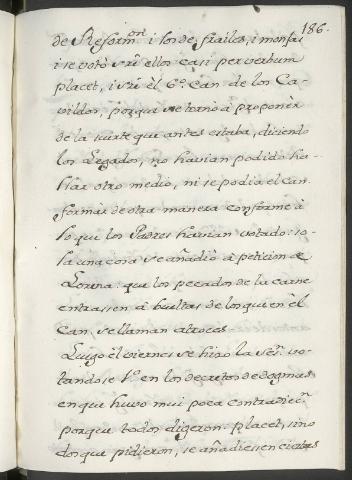 186.
de Reform.on i los de frailes, i monjas
i se votò sre. ellos casi per verbum
placet, i sre. èl 6.o Can. de los Ca-
vildos, porque se tornò à proponèr
de la suerte que antes estaba, diciendo
los Legados, no havian podido ha-
llar otro medio, ni se podia el Can.
formàr de otra manera conforme à
lo que los Padres havian votado: so-
la una cosa se añadiò à peticion de
Lorena: que los pecados de la carne
entrassen à bueltas de los que en èl
Can. se llaman atroces.
Luego èl viernes se hizo la Ses.n vo-
tandose 1.o en los decretos de dogmas
en que huvo mui poca contradic.n
porque todos digeron: placet, sino
dos que pidieron, se añadiessen ciertas